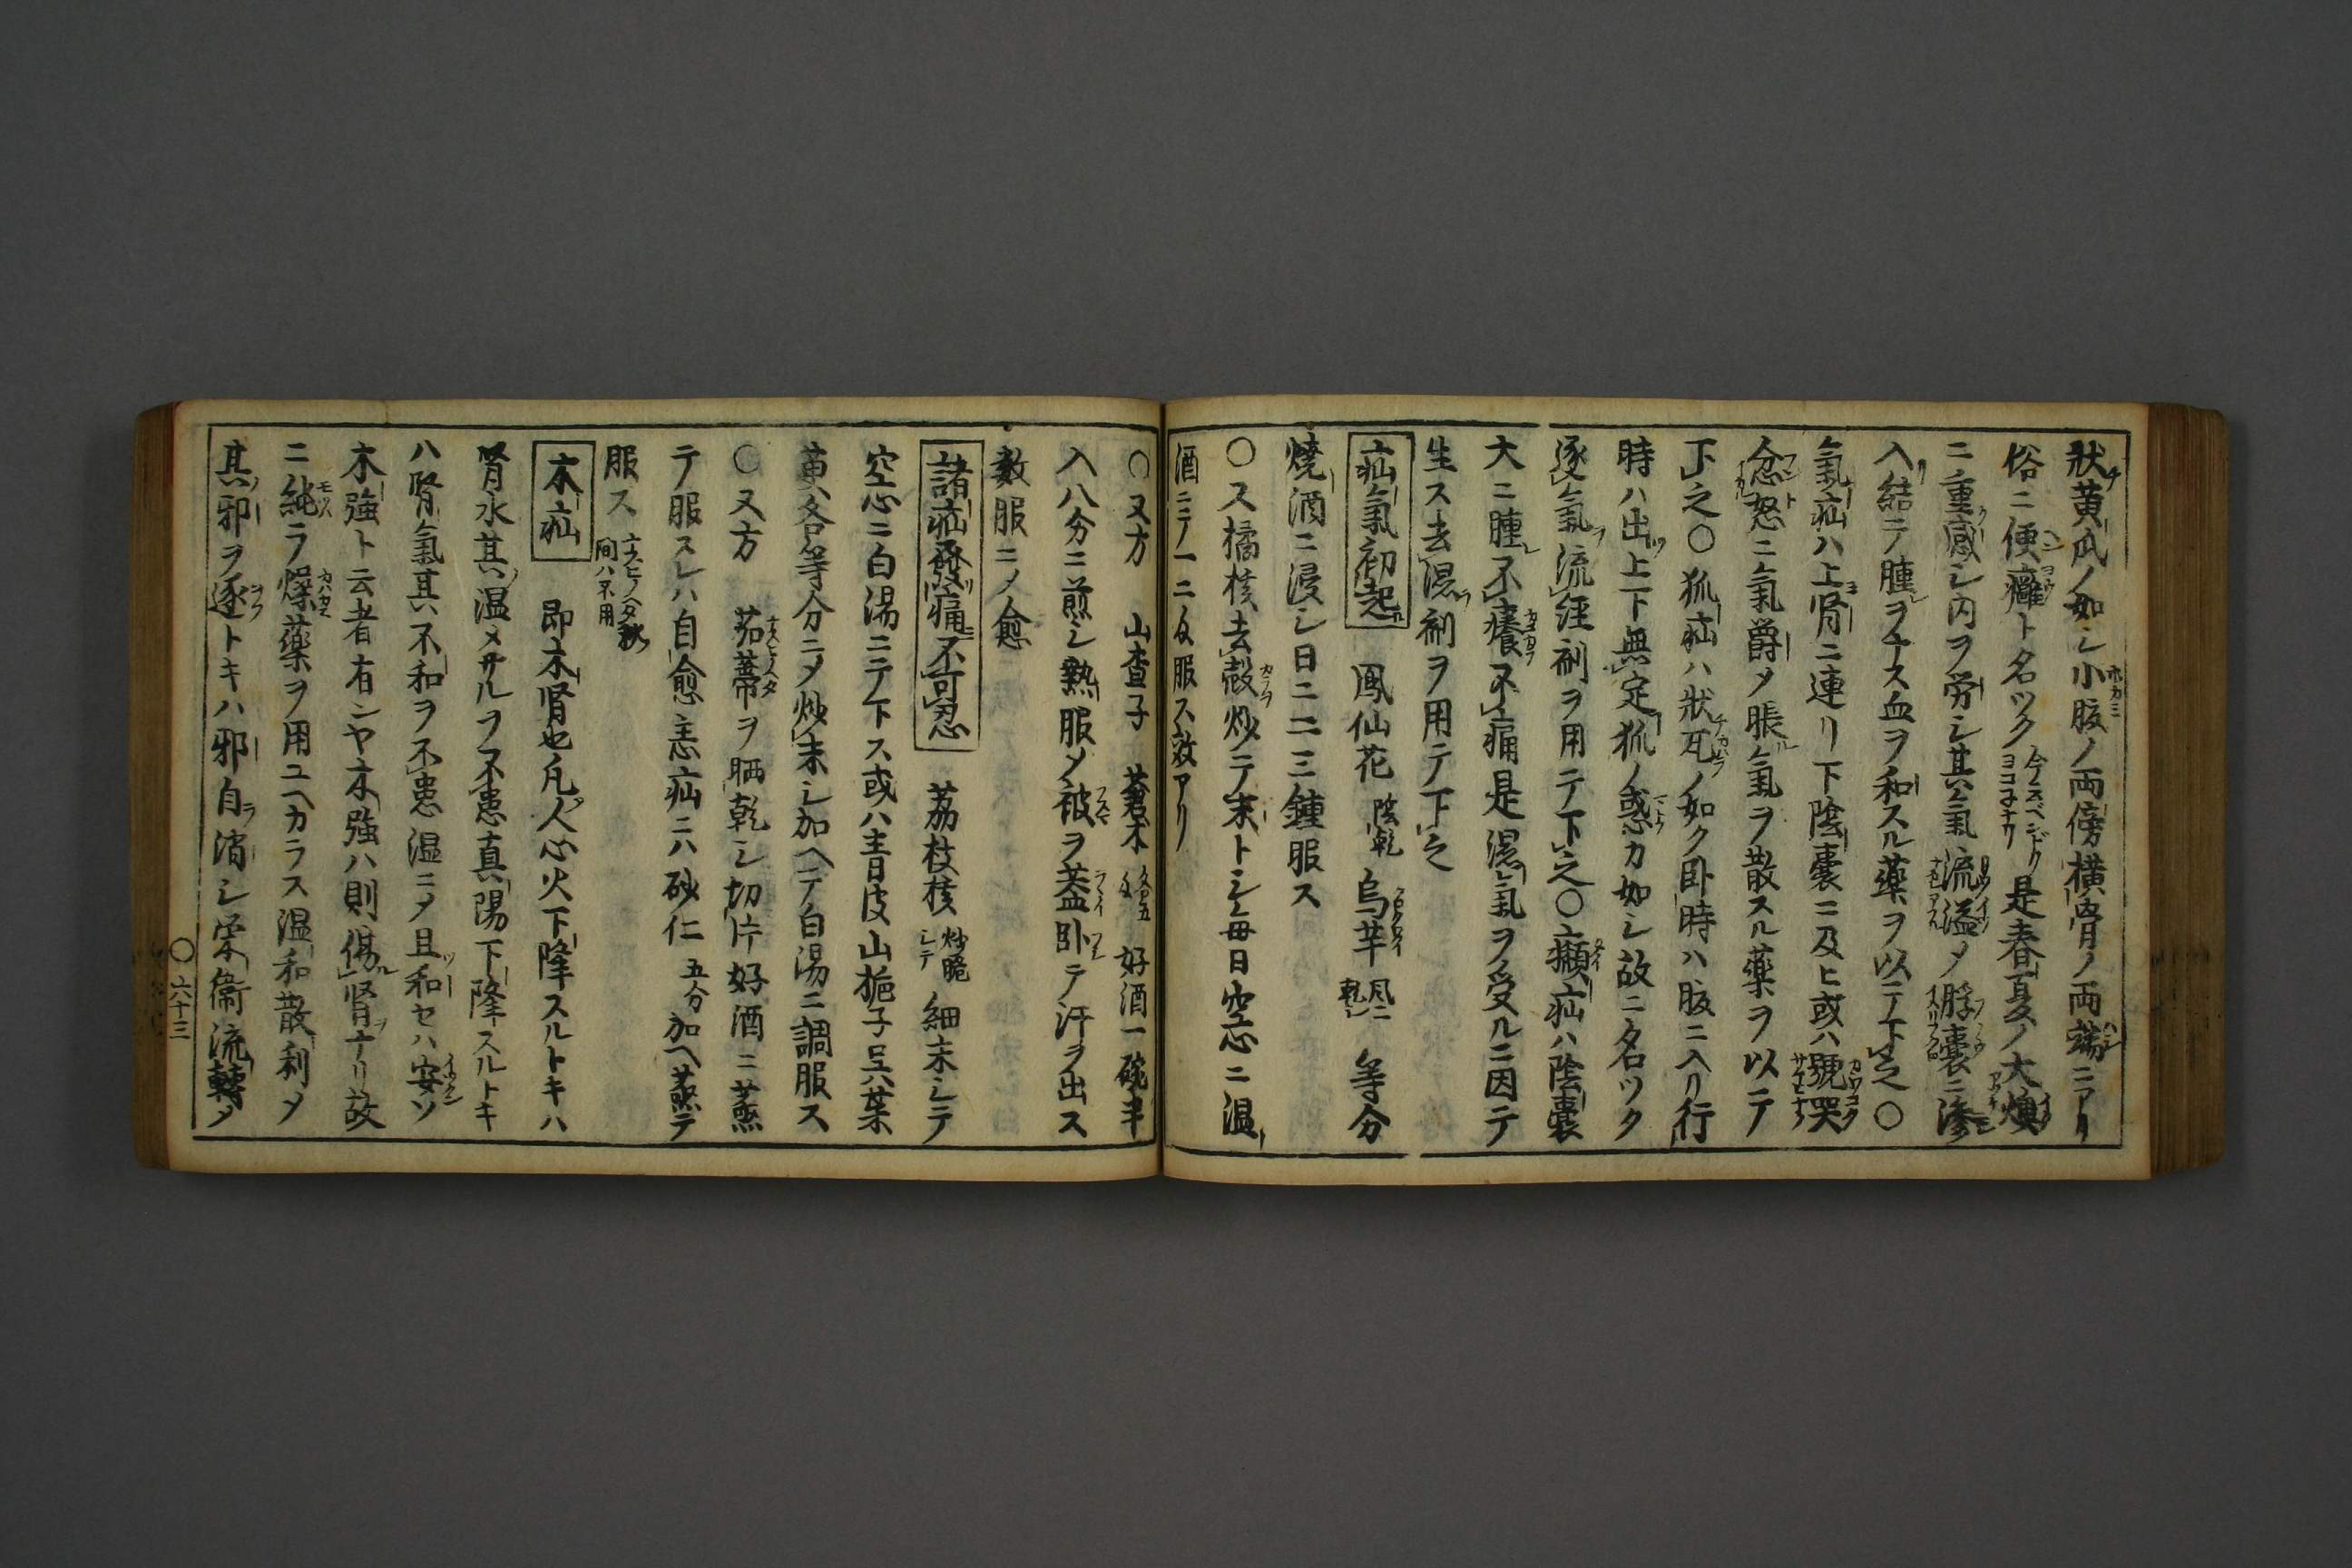 狀黄瓜ノ如シ小腹ノ両傍横骨ノ両端ニアリ
俗ニ便癰ト名ツク今云ベンドクヨコ子ナリ是春夏ノ大燠
ニ重感シ内ヲ労シ其氣流溢メ脬囊ニ滲
入結ニテ腫ヲナス血ヲ和スル藥ヲ以テ下之〇
氣疝ハ上腎ニ連リ下陰囊ニ及ヒ或ハ號哭
忿怒ニ氣爵メ脹氣ヲ散スル藥ヲ以テ
下之〇狐疝ハ狀瓦ノ如ク卧時ハ腹ニ入リ行
時ハ出上下無定狐ノ惑カ如シ故ニ名ツク
逐氣流經剤ヲ用テ下之〇㿗疝ハ陰囊
大ニ腫不癢不痛是濕氣ヲ受ルニ因テ
生ス去濕剤ヲ用テ下之
疝氣初起 鳳仙花陰乾 烏芋風ニ乾 等分
燒酒ニ浸シ日ニ二三鍾服ス
〇又橘核去殻炒テ末トシ毎日空心ニ温
酒ニテ一二匁服ス效アリ
〇又方 山查子 蒼朮各五匁 好酒一碗半
入八分ニ煎シ熱服メ被ヲ蓋卧テ汗ヲ出ス
數服ニメ愈
諸疝發痛不可忍 茘枝核炒脆シテ 細末シテ
空心ニ白湯ニテ下ス或ハ青皮山梔子呉茱
萸各等分ニメ炒末シ加ヘテ白湯ニ調服ス
〇又方 茄蒂ヲ晒乾シ切片好酒ニ蒸
テ服スレハ自愈恚疝ニハ砂仁五分加ヘ蒸テ
服スナスヒノヘタ秋間ハ不用
木疝 即木腎也凡人心火下降スルトキハ
腎水其温メサルヲ不患真陽下降スルトキ
ハ腎氣其不和ヲ不患温ニメ且和セハ安ソ
木強ト云者有ンヤ木強ハ則傷腎ナリ故
ニ純ラ燥藥ヲ用ユヘカラス温和散利メ
其邪ヲ逐トキハ邪自消シ栄衞流轉メ
〇六十三